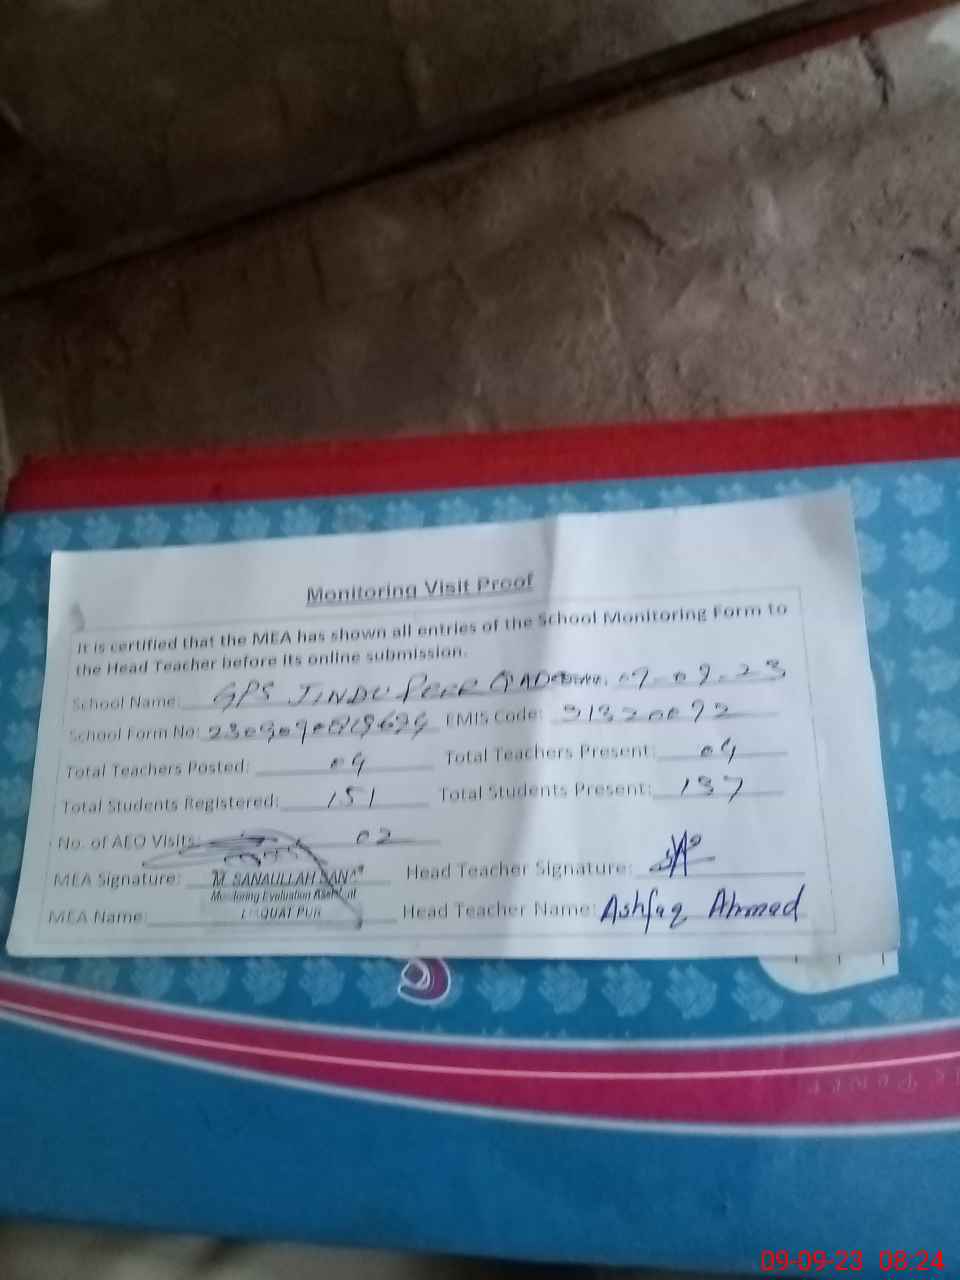 Monitoring Visit Proof
It is certified that the MEA has shown all entries of the School Monitoring Form to
the Head Teacher before its online submission.
School Name: GPS JINDU PEER 09-09-23
School Form No: EMIS Code: 31320092
Total Teachers Posted: 04 Total Teachers Present: 04
Total Students Registered: 151 Total Students Present: 137
No. of AEO Visits: 02
MEA Signature: Head Teacher Signature:
M. SANAULLAH
Monitoring Evaluation Assistant
LIAQUAT PUR
MEA Name: Head Teacher Name: Ashfaq Ahmad
09-09-23 08:24